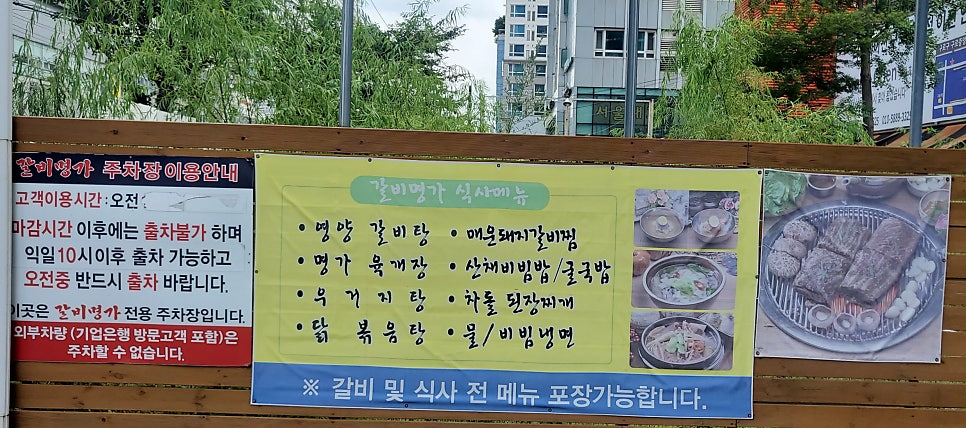 갈비명가 주차장이용안내
고객이용시간 : 오전
마감시간 이후에는 출차불가 하며
익일10시이후 출차 가능하고
오전중 반드시 출차 바랍니다.
이곳은 갈비명가 전용 주차장입니다.
외부차량 (기업은행 방문고객 포함)은
주차할 수 없습니다.
갈비명가 식사메뉴
• 영양 갈비탕
• 명가 육개장
• 우거지탕
• 닭볶음탕
• 매운돼지갈비찜
• 산채비빔밥/굴국밥
• 차돌 된장찌개
• 물/비빔냉면
※ 갈비 및 식사 전 메뉴 포장가능합니다.